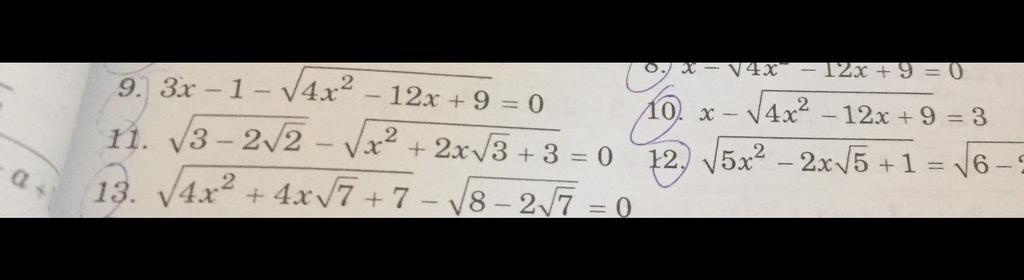 8. x − √4x² − 12x + 9 = 0
9. 3x − 1 − √4x² − 12x + 9 = 0
10. x − √4x² − 12x + 9 = 3
11. √3 − 2√2 − √x² + 2x√3 + 3 = 0
12. √5x² − 2x√5 + 1 = √6 −
13. √4x² + 4x√7 + 7 − √8 − 2√7 = 0
a +